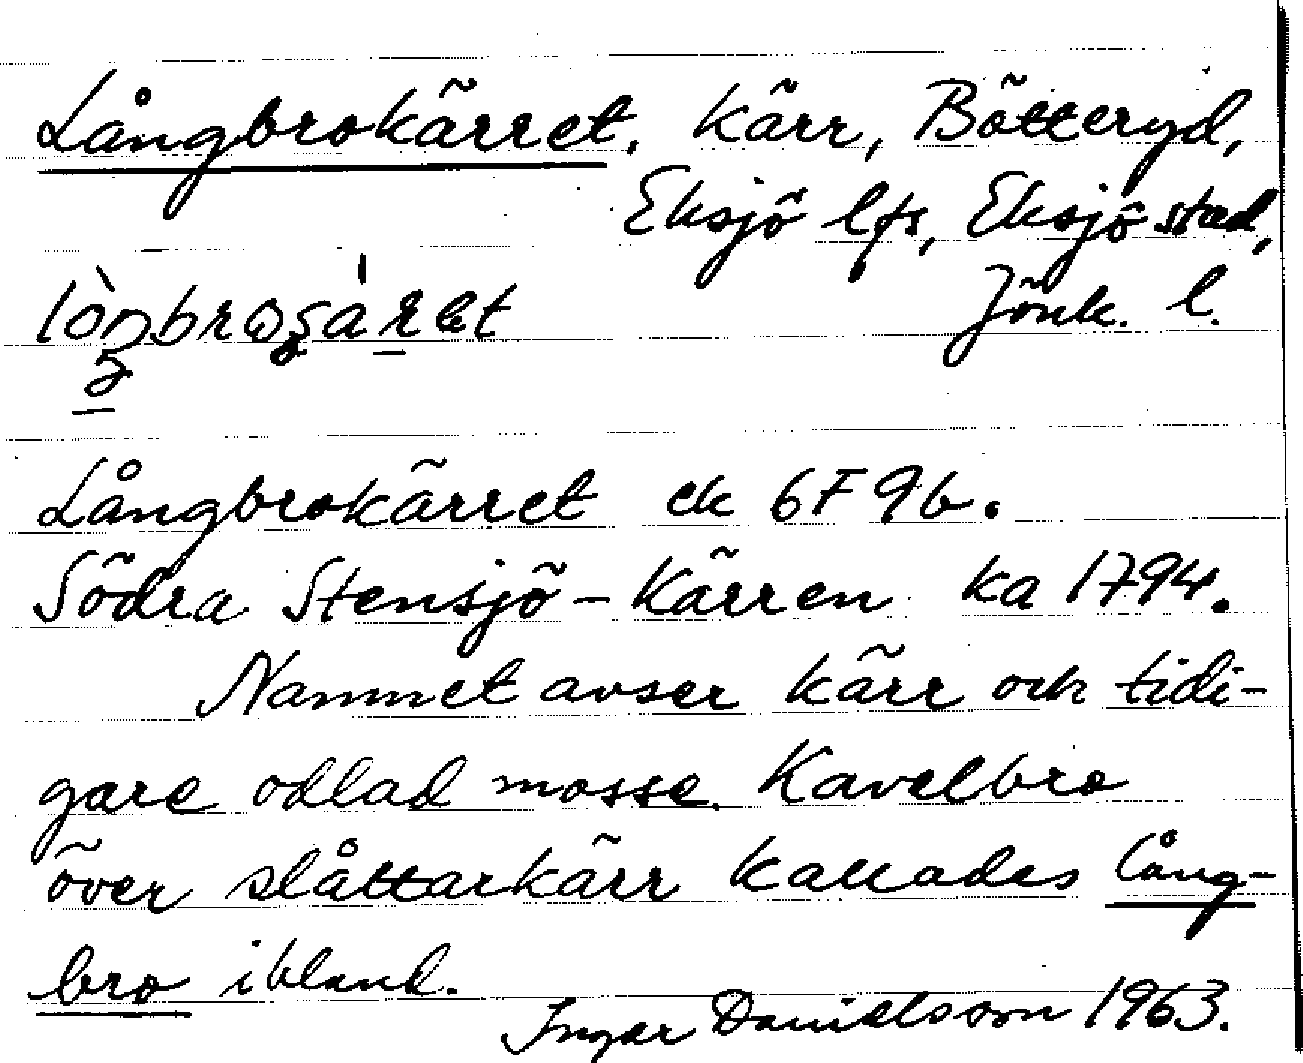 Långbrokärret. Kärr, Bötteryd,
Eksjö lfs, Eksjö stad,
Jönk. l.
Långbrokärret ek 6F 9b.
Södra Stensjö-Kärren ka 1794.
Namnet avser kärr och tidi-
gare odlad mosse. Kavelbro
över slåttarkärr kallades lång-
bro ibland.
Ingar Danielsson 1963.